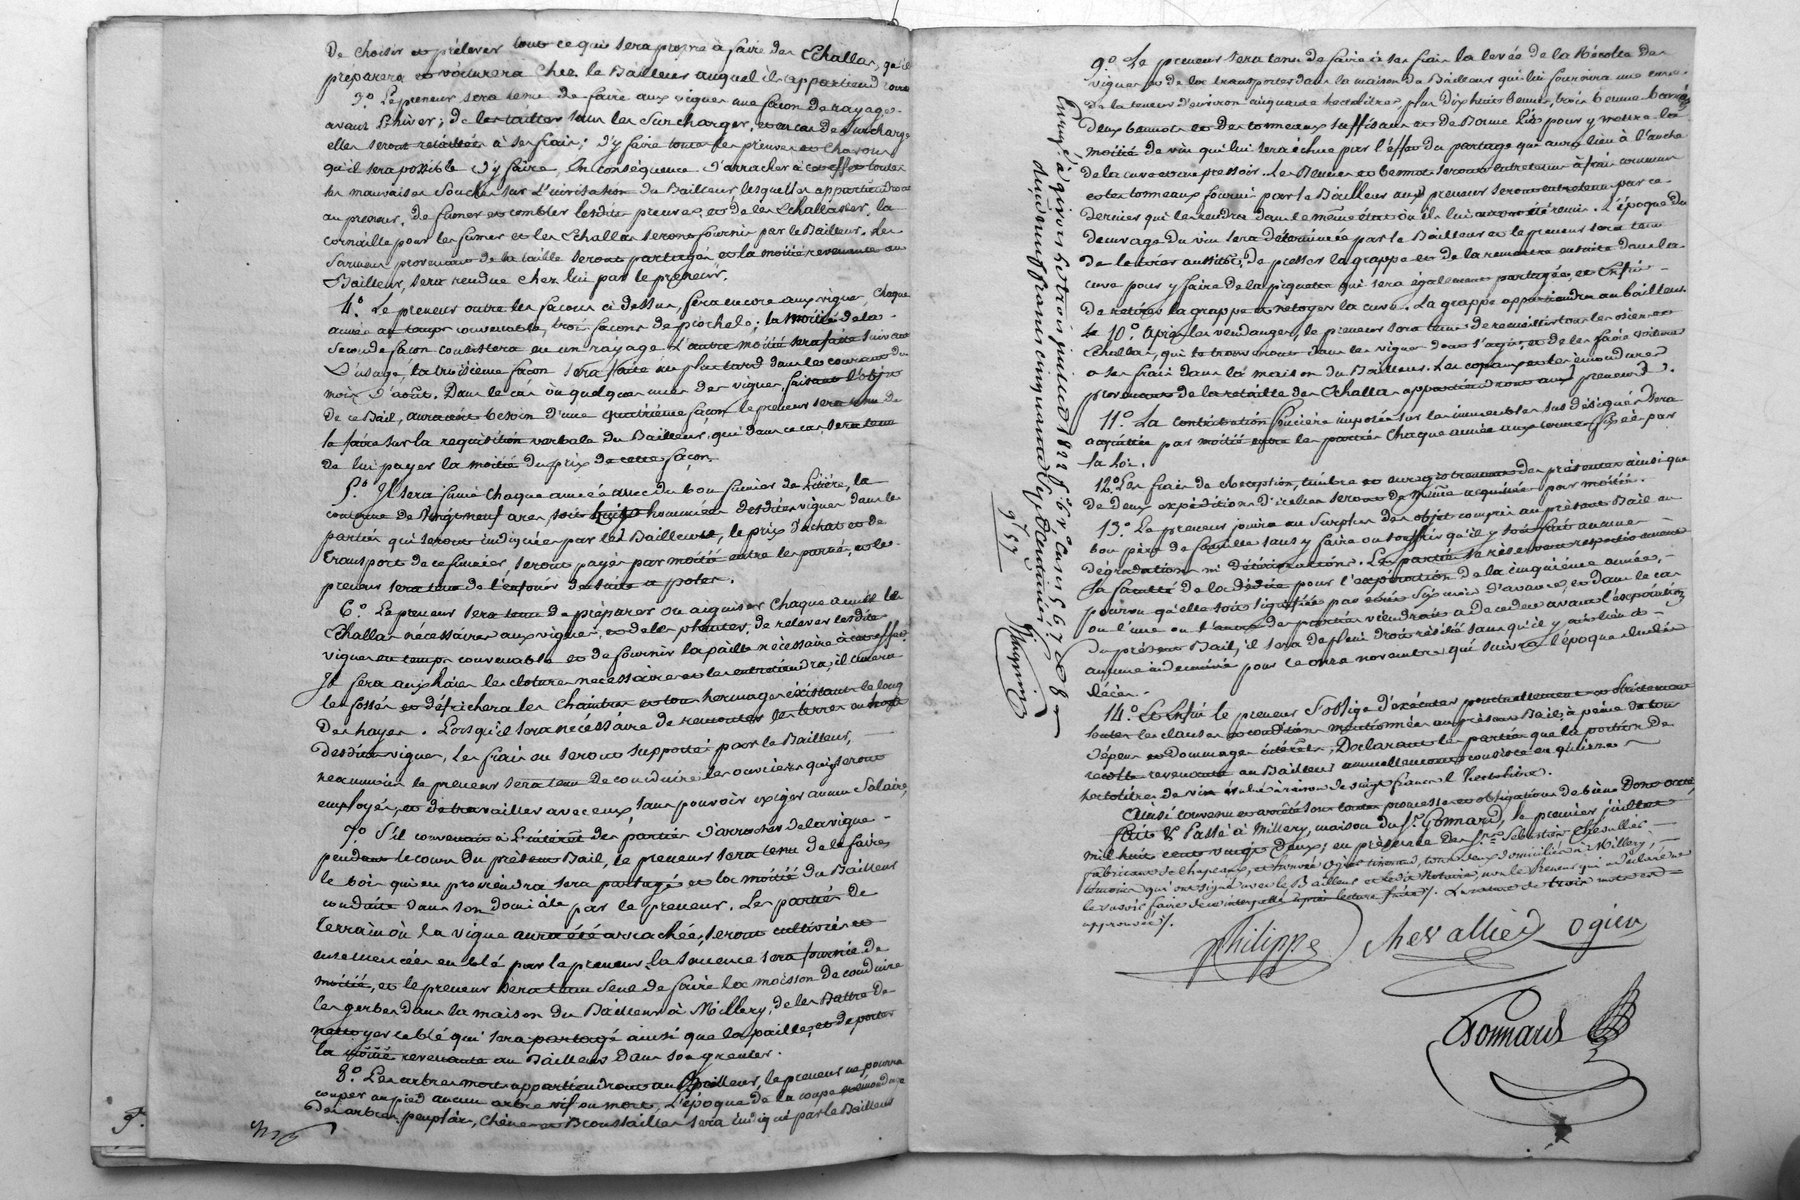 De choisir et prélever tout ce qui sera propre à faire des Echallas, qu'il
preparera et voiturera chez le Bailleur auquel ils appartiendront
3.º Le preneur sera tenu de faire aux vignes une façon de rayage
avant l'hiver; de les tailler sans les surcharger, et en cas de surcharge
elles seront retaillées à ses frais; d'y faire toutes les preuves et Chavons
qu'il sera possible d'y faire, En conséquence d'arracher à cet effet toutes
les mauvaises souches sur l'indication du Bailleur, lesquelles appartiendront
au preneur, de fumer et combler lesdites preuves, et de les Echallasser. la
cornaille pour les fumer et les Echallas seront fournis par le Bailleur. Les
sarmens provenans de la taille seront partagés et la moitié revenante au
Bailleur, sera rendue chez lui par le preneur.
4.º Le preneur outre les façons ci dessus, fera encore aux vignes, chaque
année au temps convenable, trois façons de piochele; la moitié de la
seconde façon consistera en un rayage l'autre moitié sera faite suivant
L'usage, la troisième façon sera faite au plus tard dans le courant du
mois d'août. Dans le cas où quelqu'unes des vignes, faisant l'objet
de ce Bail, auraient besoin d'une quatrième façon le preneur sera tenu de
la faire sur la requisition verbale du Bailleur, qui dans ce cas, sera tenu
de lui payer la moitié du prix de cette façon.
5.º Il sera fumé chaque année avec du bon fumier de litière, la
contenue de vingt neuf ares, soit hommées desdites vignes dans les
parties qui seront indiquées par le Bailleur, le prix d'achat et de
transport de ce fumier, seront payés par moitié entre les parties, et le
preneur sera tenu de l'enfouir de suite a poles.
6.º Le preneur sera tenu de préparer ou aiguiser chaque année les
Echallas nécessaires aux vignes, et de les planter, de relever lesdites
vignes en temps convenable et de fournir la paille nécessaire à cet effet.
Il fera aux haies les clotures nécessaires et les entretiendra; il curera
les fossés et défrichera les Chaintres et tous hermages existant le long
Des hayes. Lorsqu'il sera nécéssaire de remonter les terres au haut
desdites vignes, les frais en seront supportés par le Bailleur,
neanmoins le preneur sera tenu de conduire les ouviers qui y seront
employés, et de travailler avec eux, sans pouvoir exiger aucun salaire,
7.º S'il convenait à l'intérêt des parties d'arracher de la vigne
pendant le cours du présent Bail, le preneur sera tenu de le faire
le bois qui en proviendra sera partagé et la moitié du Bailleur
conduite dans son domicile par le preneur. Les parties de
terrain où la vigne aura été arrachée, seront cultivées et
ensemencées en blé par le preneur, la semence sera fournie de
moitié, et le preneur sera tenu seul de faire la moisson de conduire
les gerbes dans la maison du Bailleur à Millery, de les Battre de
nettoyer le blé qui sera partagé ainsi que la paille, et de porter
la moitié revenante au Bailleur dans son grenier.
8.º Les arbres morts appartiendront au Bailleur, le preneur ne pourra
couper au pied aucun arbre vif ou mort. L'époque de la coupe
des arbres peupliers, Chênes et Broussailles sera indiqué par le Bailleur
9.º Le preneur sera tenu de faire à ses frais la levée de la Récolte des
vignes et de les transporter dans la maison du Bailleur qui lui fournira une cuve
de la teneur d'environ cinquante hectolitres, plus dix huit bennes, trois bennes
Deux bennots et des tonneaux suffisans et de Bonne pour y mettre la
moitié de vin qui lui sera échue par l'effet du partage qui aura lieu à l'anche
de la cuve et au pressoir. Les Bennes et bennots seront entretenus à frais communs
et les tonneaux fournis par le Bailleur aux preneur seront entretenus par ce
dernier qui les rendra dans le même état où ils lui auront été remis. L'époque du
decuvage du vin sera déterminée par le Bailleur et le preneur sera tenu
de le tirer aussitôt, de presser la grappe et de la remettre ensuite dans la
cuve pour y faire de la piquette qui sera également partagée, et Enfin
de retirer la grappe et netoyer la cuve. La grappe appartiendra au bailleur.
10.º Après les vendanges, le preneur sera tenu de recueillir tous les osiers et
Echallas, qui se trouveront dans les vignes dont s'agit, et de les faire voiturer
a ses frais dans la maison du Bailleur. Les copaux et les émondures
provenant de la retaille des Echallas appartiendront aux preneurs.
11.º La contribution foncière imposée sur les immeubles sus désignés sera
acquittée par moitié entre les parties chaque année aux termes fixés par
la loi.
12.º Les frais de réception, timbre et enregistrement des présentes ainsi que
de deux expéditions d'icelles seront de même acquittés par moitié.
13.º Le preneur jouira au surplus des objet compris au présent Bail en
bon père de famille sans y faire ou souffrir qu'il y soit fait aucunes
dégradations ni détériorations. Les parties se réservent respectivement
la faculté de la dédite pour l'expiration de la cinquième année,
pourvu qu'elle soit signifiée par écrit six mois d'avance, et dans le cas
ou l'une ou l'autre des parties viendrait a deceder avant l'expiration
du présent Bail, il sera de plein droit résilié sans qu'il y ait lieu à
aucune indemnité pour le onze novembre qui suivra l'époque dudit
décès.
14.º Et Enfin le preneur s'oblige d'exécuter ponctuellement et strictement
toutes les clauses et conditions mentionnées au présent Bail, à peine de tous
dépens et dommages intérêts, Déclarant les parties que la portion de
recolte revenante au Bailleur annuellement consiste en quinze
hectolitres de vin évalué à raison de vingt francs l'hectolitre.
Ainsi convenu et arrêté sous toutes promesses et obligations de biens Dont acte,
fait & Passé à Millery, maison du Sr. Gonnard, le premier juillet
mil huit cent vingt deux; en présence des Srs. Sébastien Chevallier
fabricant de Chapeaux, et Ogier tisserand, tous deux domiciliés à Millery,
témoins qui ont signé avec le Bailleur et ledit Notaire, non le Preneur qui a déclaré ne
le savoir faire de ce interpellé après lecture faite. La rature de trois mots est
approuvée.
philippe Chevallier Ogier
Gonnard
Enregé. à givors le trois juillet 1822 fº 67 vº. cases 5. 6. 7. et 8